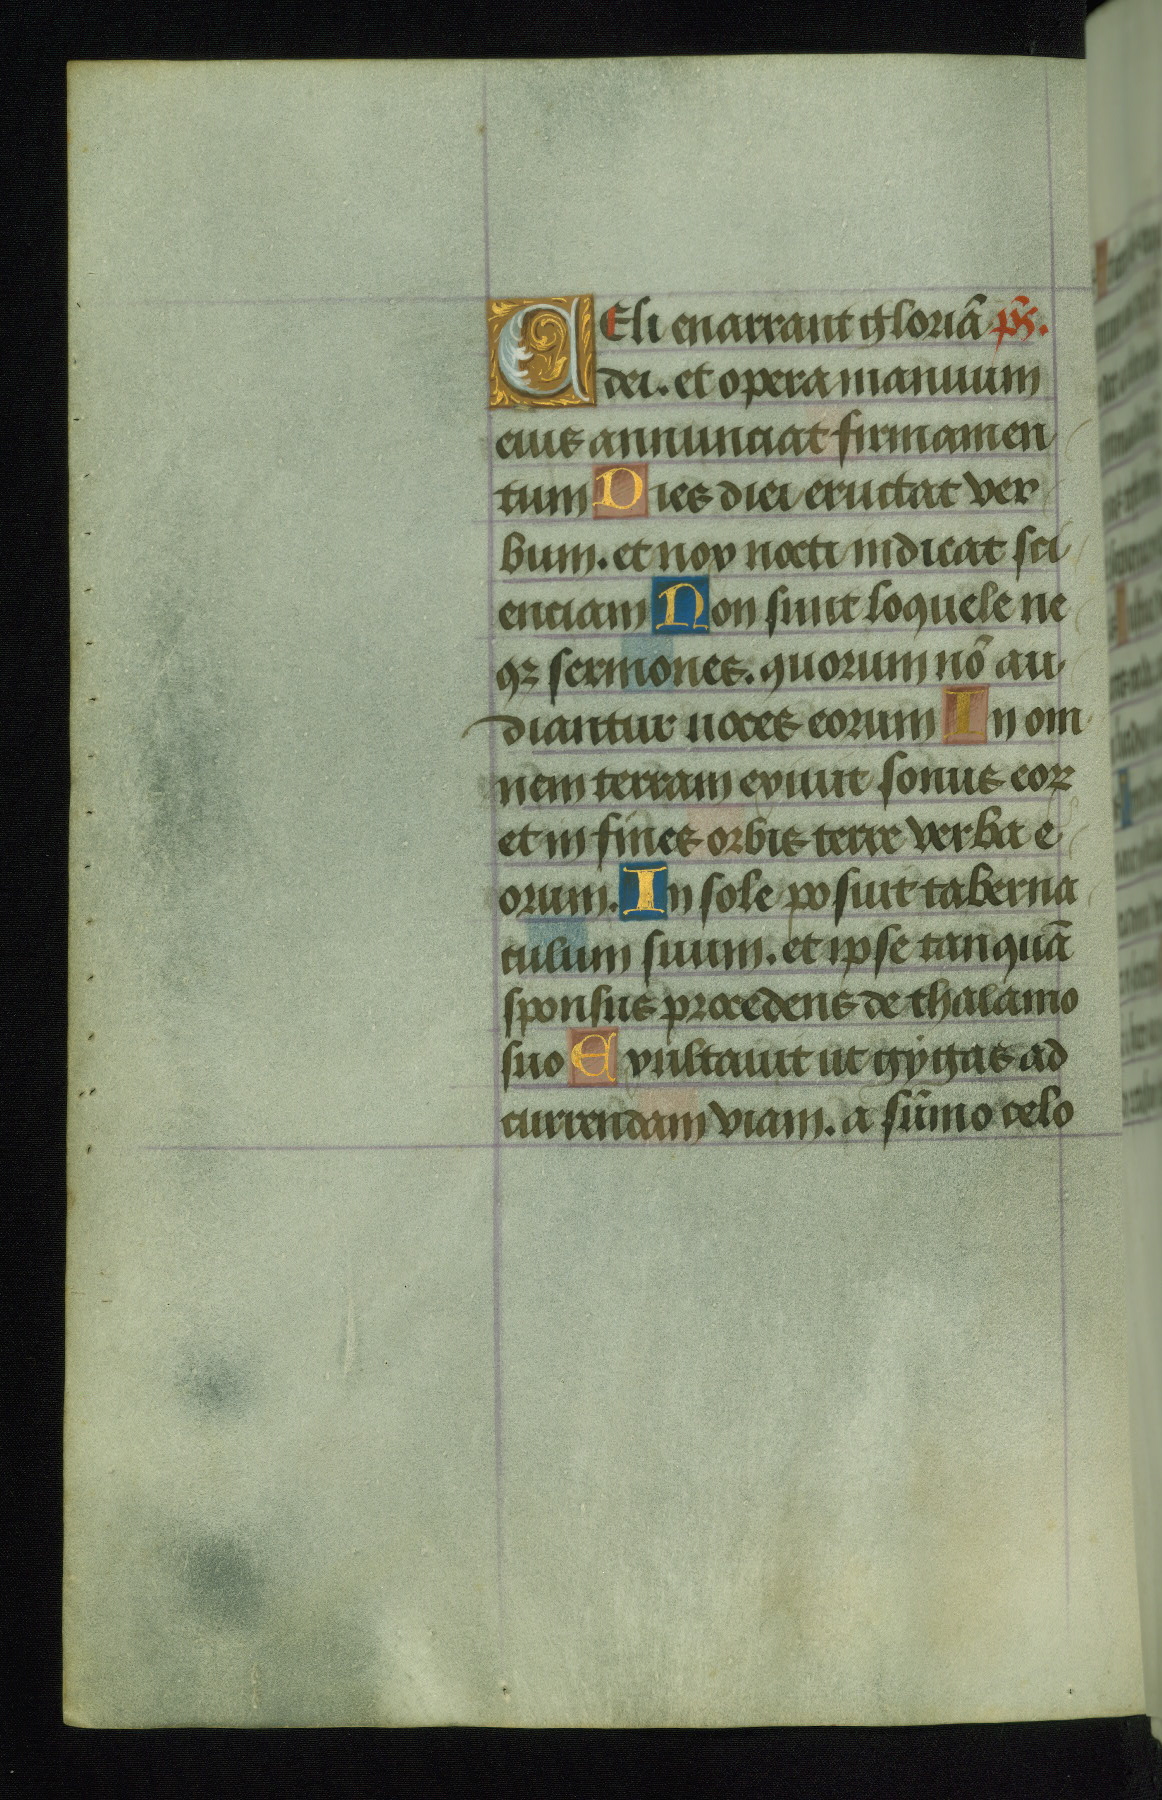 CEli enarrant gloriā ps̄.
dei. et opera manuum
eius annunciat firmamen
tum Dies diei eructat ver
bum. et nox nocti indicat sci
enciam Non sunt loquele ne
qꝫ sermones. quorum nō au
diantur uoces eorum In om
nem terram exiuit sonus eoꝝ
et in fines orbis terre verba e
orum. In sole posuit taberna
culum suum. et ipse tanquā
sponsus procedens de thalamo
suo Exultauit ut gygas ad
currendam viam. a sūmo celo